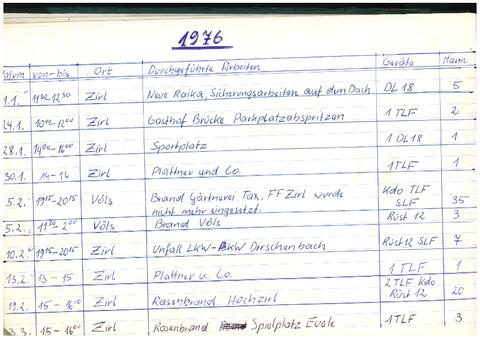 1976
Datum von-bis Ort Durchgeführte Arbeiten Geräte Mann
1.1. 11:00-12:30 Zirl Neue Raika, Sicherungsarbeiten auf dem Dach DL18 5
24.1. 10:00-12:00 Zirl Gasthof Brücke Parkplatzabspritzen 1 TLF 2
28.1. 14:00-16:00 Zirl Sportplatz 1 DL18 1
30.1. 14-16 Zirl Plattner und Co. 1TLF 1
5.2. 19:15-20:15 Völs Brand Gärtnerei Tax, FF Zirl wurde Kdo TLF
nicht mehr eingesetzt. SLF 35
5.2. Völs Brand Völs Rüst 12 3
10.2. 19:15-20:15 Zirl Unfall LKW-PKW Dirschenbach Rüst12 SLF 7
13.2. 13-15 Zirl Plattner u. Co. 1 TLF 1
19.2. Zirl Rasenbrand Hochzirl 2TLF Kdo
Rüst 12 20
3.3. 15-16:00 Zirl Rasenbrand Spielplatz 1TLF 3